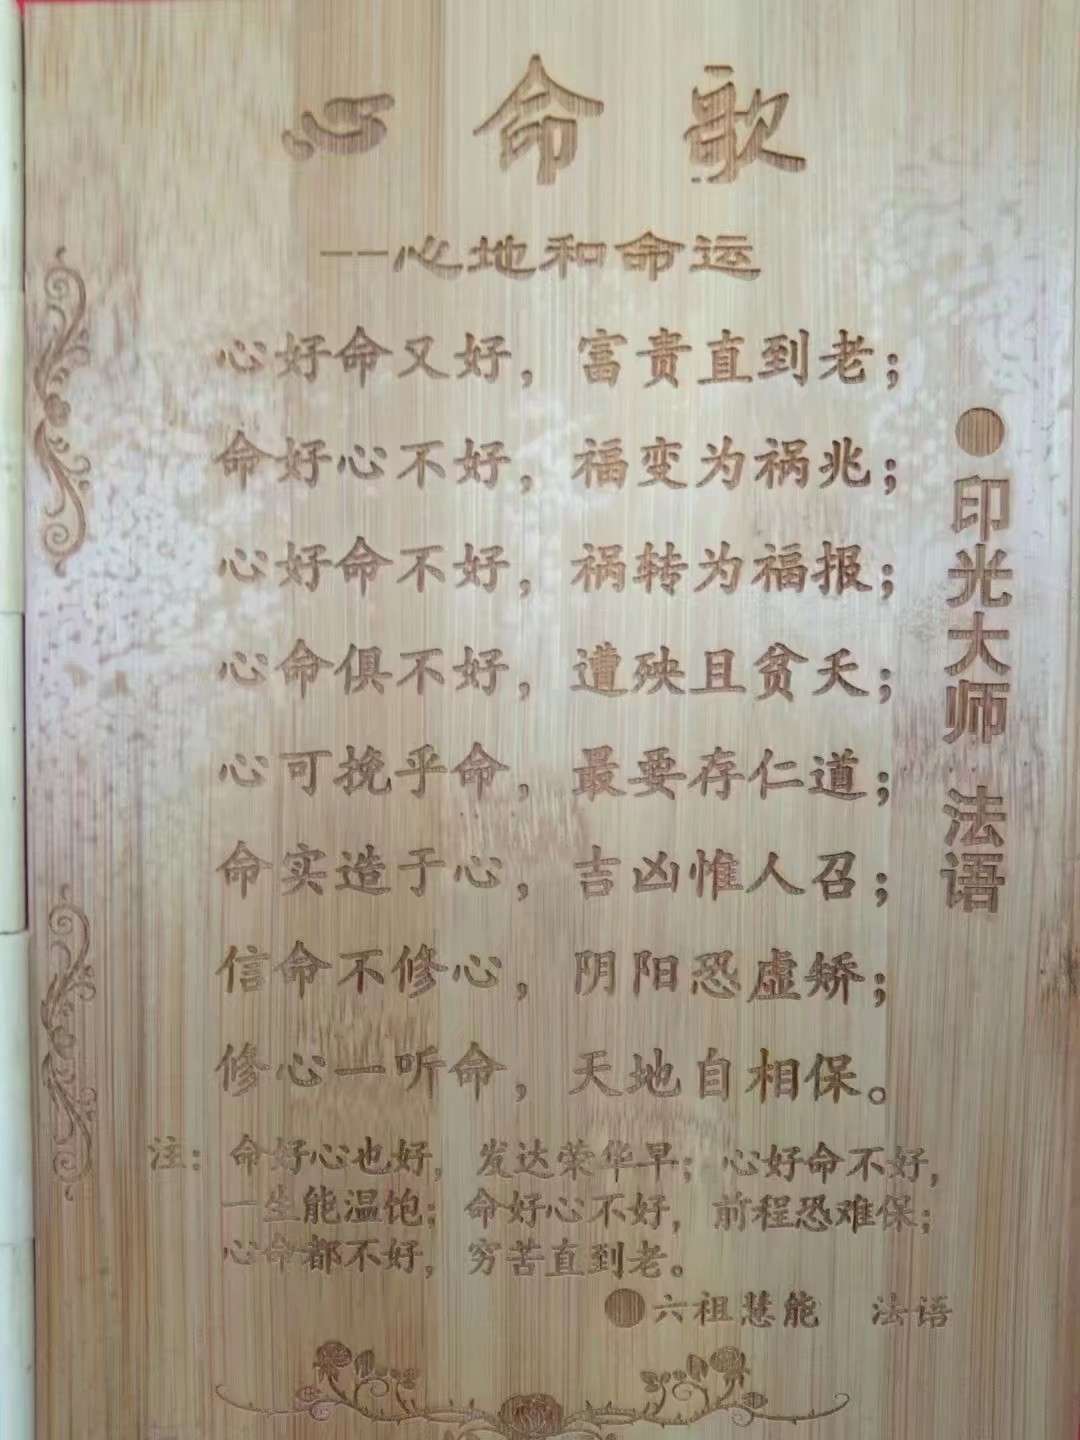 心命歌
--心地和命运
心好命又好，富贵直到老；
命好心不好，福变为祸兆；
心好命不好，祸转为福报；
心命俱不好，遭殃且贫夭；
心可挽乎命，最要存仁道；
命实造于心，吉凶惟人召；
信命不修心，阴阳恐虚矫；
修心一听命，天地自相保。
●印光大师 法语
注：命好心也好，发达荣华早；心好命不好，
一生能温饱；命好心不好，前程恐难保；
心命都不好，穷苦直到老。
●六祖慧能 法语